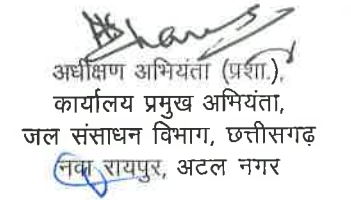 अधीक्षण अभियंता (प्रशा.),
कार्यालय प्रमुख अभियंता,
जल संसाधन विभाग, छत्तीसगढ़
नवा रायपुर, अटल नगर